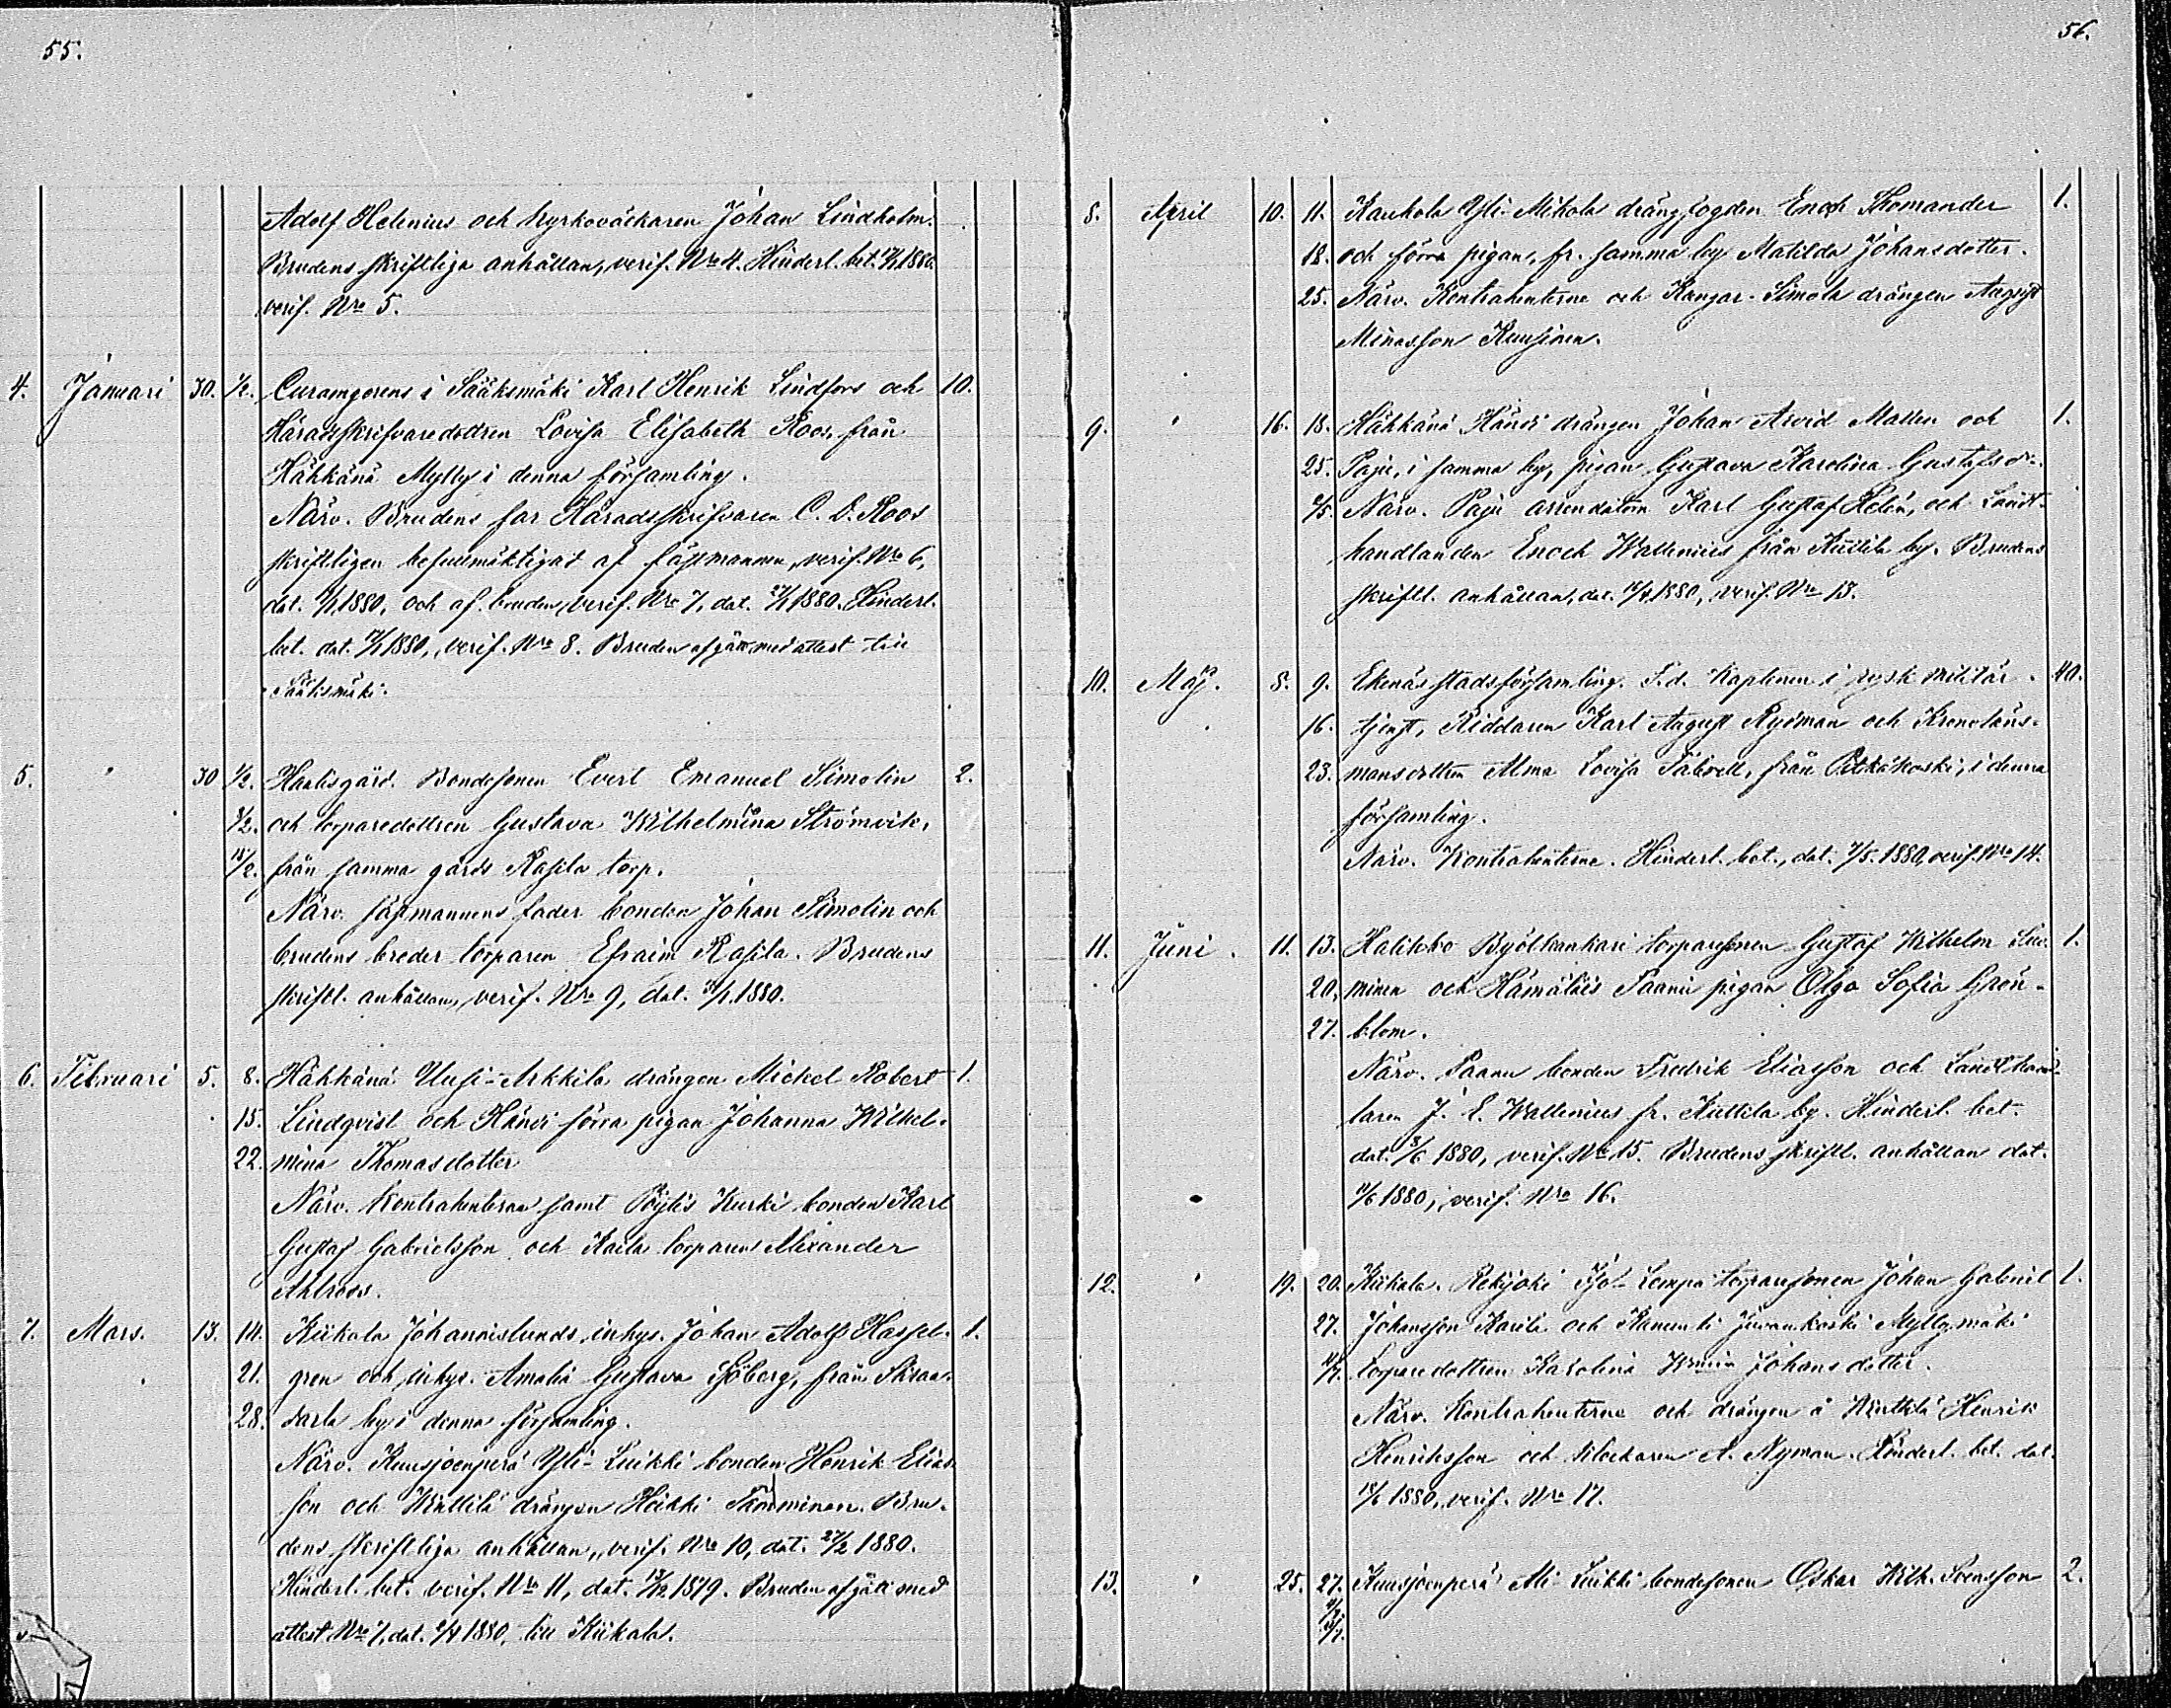 55.
Adolf Helenius och kyrkoväckaren Johan Lindholm.
Brudens skriftliga anhållan, verif. Nro 4. Hinderl. bet. 1880.
verif. Nro 5.
4. Januari 30. 1/2. Curamgerens i Sääksmäki Karl Henrik Lindfors och 10.
Häradsskrifvaredottren Lovisa Elisabeth Roos, från
Hähkänä Mylly i denna församling.
Närv. Brudens far Häradsskrifvaren C. D. Roos
skriftligen befullmäktigat af fästmannen, verif. Nro 6,
dat. 1880, och af bruden, verif. Nro 7, dat. 27/1 1880. Hinderl.
bet. dat. 1880, verif. Nro 8. Bruden afgått med attest till
Sääksmäki.
5. " 30 1/2. Haalisgård. Bondesonen Evert Emanuel Simolin 2.
8/2. och torparedottren Gustava Wilhelmina Strömvik,
15/2. från samma gårds Rasila torp.
Närv. fästmannens fader bonden Johan Simolin och
brudens broder torparen Efraim Rasila. Brudens
skriftl. anhållan, verif. Nro 9, dat. 1880.
6. Februari 5. 8. Hähkänä Uusi-Arkkila drängen Mickel Robert 1.
15. Lindqvist och Händi förra pigan Johanna Wilhel-
22. mina Thomasdotter
Närv. Kontrahenterna samt Pöytis Kurki bonden Karl
Gustaf Gabrielsson och Kaila torparen Alexander
Ahlroos.
7. Mars. 13. 14. Kiikala Johannislunds inhys. Johan Adolf Hassel- 1.
21. gren och inhys. Amalia Gustava Sjöberg, från Skraa-
28. darla by i denna församling.
Närv. Kuusjoenperä Yli-Luikki bonden Henrik Elias-
son och Wättilä drängen Heikki Tamminen. Bru-
dens skriftliga anhållan, verif. Nro 10, dat. 27/2 1880.
Hinderl. bet. verif. Nro 11, dat. 13/12 1879. Bruden afgått med
attest Nro 7, dat. 2/4 1880, till Kiikala.
56.
8. April 10. 11. Kaukola Yli-Mikola drängfogden Enoch Thomander 1.
18. och förra pigan, fr. samma by Matilda Johansdotter.
25. Närv. Kontrahenterne och Kangar-Simola drängen August
Minasson Kuusinen.
9. " 16. 18. Hähkänä Händi drängen Johan Arvid Mallen och 1.
25. Paju, i samma by, pigan Gustava Karolina Gustafsdr.
2/5. Närv. Paju arrendatorn Karl Gustaf Helin, och Landt-
handlanden Enoch Wallenius från Kuttila by. Brudens
skriftl. anhållan, dat. 16/4 1880, verif. Nro 13.
10. Maj. 8. 9. Ekenäs stadsförsamling. F.d. Kaptenen i rysk militär- 40.
16. tjenst, Riddaren Karl August Rydman och Kronoläns-
23. mansdottren Alma Lovisa Tabvell, från Pitkäkoski, i denna
församling.
Närv. Kontrahenterne. Hinderl. bet., dat. 7/5 1880, verif. Nro 14.
11. Juni. 11. 13. Halikko torparesonen Gustaf Wilhelm Suo- 1.
20. minen och Hämäläis Paanu pigan Olga Sofia Grön-
27. blom.
Närv. Paanu bonden Fredrik Eliasson och Landthand-
laren J. E. Wallenius fr. Kuttila by. Hinderl. bet.
dat. 8/6 1880, verif. Nro 15. Brudens skriftl. anhållan dat.
11/6 1880, verif. Nro 16.
12. " 19. 20. Kiikala. Rekijoki Lempa torparesonen Johan Gabriel 1.
27. Johansson Karila och Kanunki Juvankoski Myllymäki
4/7. torparedottren Karolina Johansdotter.
Närv. Kontrahenterne och drängen å Wättilä Henrik
Henriksson och klockaren A. Nyman. Hinderl. bet. dat.
18/6 1880, verif. Nro 17.
13. " 25. 27. Kuusjoenperä Ali-Luikki bondesonen Oskar Wilh. Svensson 2.
4/7.
11/7.